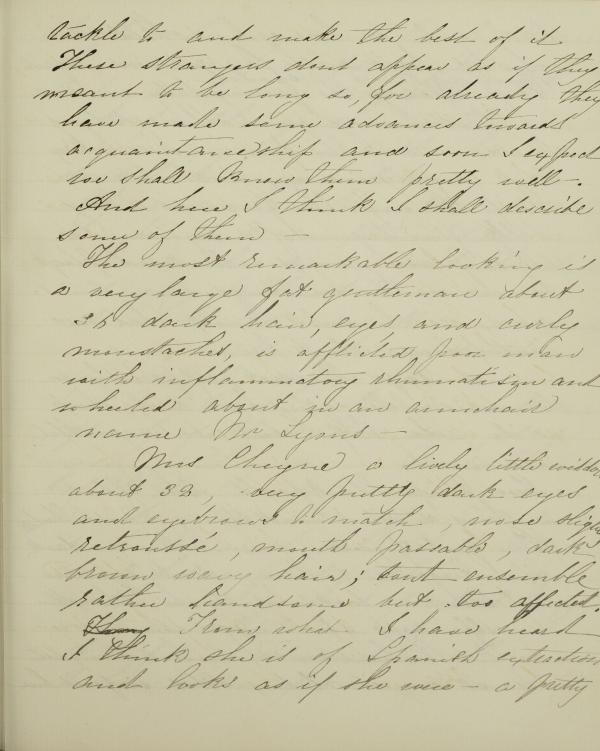 tackle to and make the best of it
These strangers dont appear as if they
meant to be long so, for already they
have made some advances towards
acquaintanceship and soon I expect
we shall know them pretty well -.
And here I think I shall describe
some of them —
The most remarkable looking is
a very large fat gentleman about
35 dark hair, eyes and curly
moustaches, is afflicted poor man
with inflammatory rheumatism and
wheeled about in an armchair
name Mr Lyons —
Mrs Cheyne a lively little widow
about 32, very pretty dark eyes
and eyebrows to match, nose slightly
retroussé, mouth passable, dark
brown wavy hair; tout ensemble
rather handsome but too affected.
From what I have heard
I think she is of Spanish extraction
and looks as if she were - a pretty